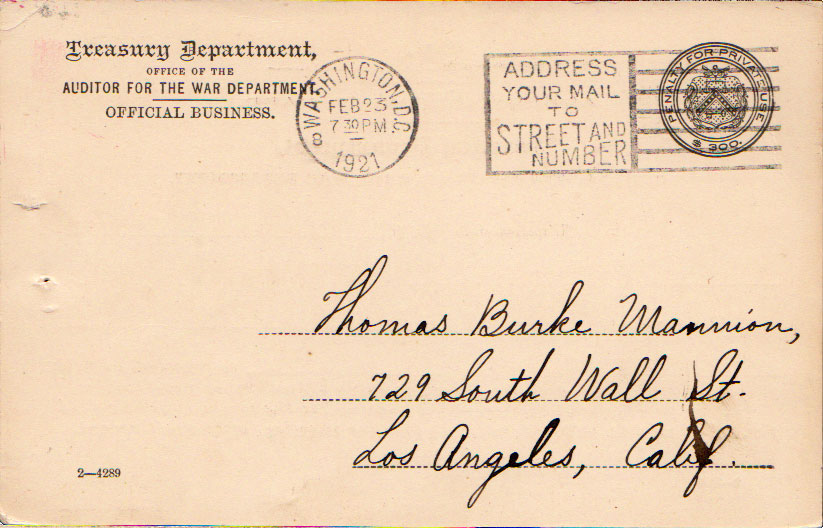 Treasury Department,
OFFICE OF THE
AUDITOR FOR THE WAR DEPARTMENT.
OFFICIAL BUSINESS.
WASHINGTON, D.C.
FEB 23
7 30 PM
8
1921
ADDRESS
YOUR MAIL
TO
STREET AND
NUMBER
PENALTY FOR PRIVATE USE
$300.
Thomas Burke Mannion,
729 South Wall St.
Los Angeles, Calif.
2—4289